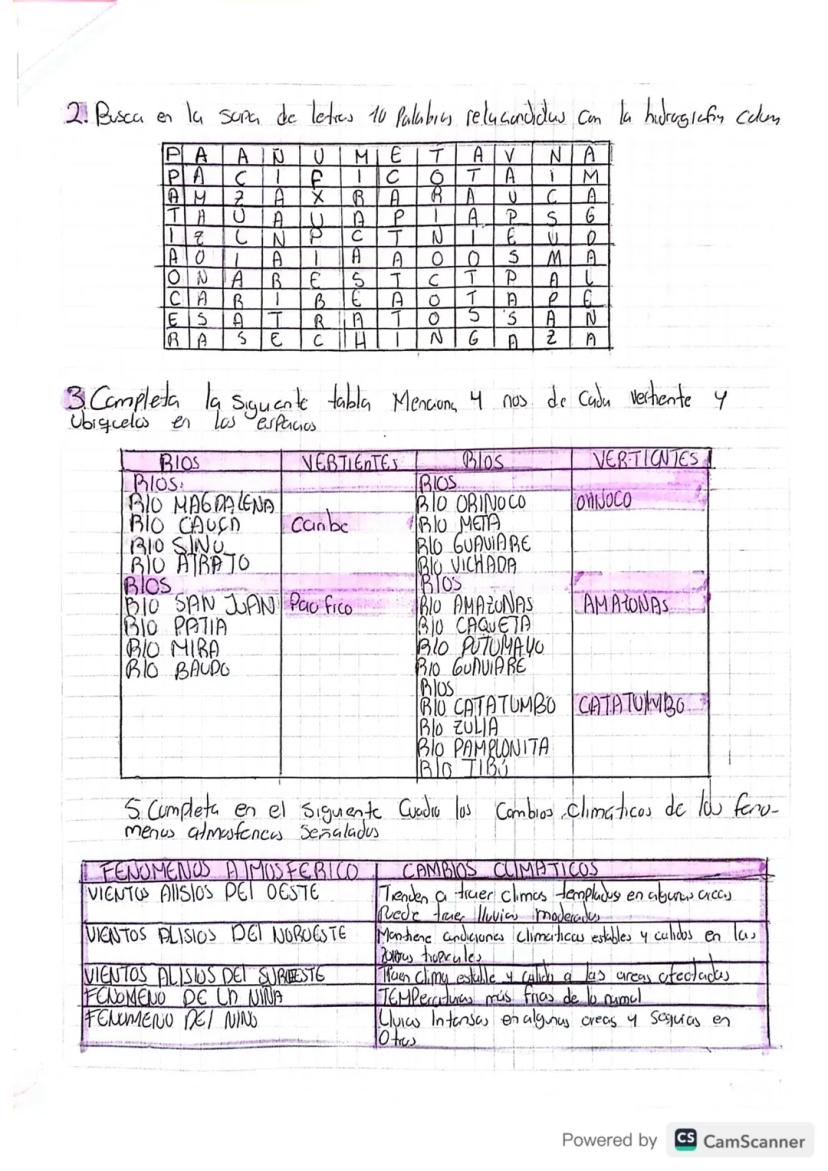 2. Busca en la sopa de letras 10 Palabras relacondidas con la hidrografia colom
P A A Ñ U M E T A V N A
P A C I F I C O T A I M
A M Z A X R A R A U C A
T A U A U A P I A P S G
I Z L N P C T N I E U D
A O I A I A A O O S M A
O N A R E S T C T P A L
C A R I B E A O T A P E
E S A T R A T O S S A N
R A S E C H I N G A Z A
3. Completa la siguente tabla Menciona 4 rios de Cada vertiente y
Ubiquelos en los espacios
RIOS VERTIENTES RIOS VERTIENTES
RIOS: RIOS
RIO MAGDALENA RIO ORINOCO ORINOCO
RIO CAUCA Caribe RIO META
RIO SINU RIO GUAVIARE
RIO ATRATO RIO VICHADA
RIOS RIOS
RIO SAN JUAN Pacifico RIO AMAZONAS AMAZONAS
RIO PATIA RIO CAQUETA
RIO MIRA RIO PUTUMAYO
RIO BAUDO RIO GUAVIARE
RIOS
RIO CATATUMBO CATATUMBO
RIO ZULIA
RIO PAMPLONITA
RIO TIBÚ
5. Completa en el siguiente Cuadro los Cambios Climáticos de los feno-
menos atmosfericos Señalados
FENOMENOS ATMOSFERICO CAMBIOS CLIMATICOS
VIENTOS AlISIOS DEl OESTE Tienden a traer climas templados en algunas areas
Puede traer lluvias moderadas
VIENTOS ALISIOS DEl NOROESTE Mantiene condiciones climaticas estables y calidos en las
zonas tropicales
VIENTOS ALISIOS DEl SUROESTE Traen clima estable y calido a las areas afectadas
FENOMENO DE LA NIÑA TEMPeraturas más frias de lo normal
FENOMENO DEl NIÑO Lluvias Intensas en algunas areas y sequias en
Otras
Powered by CS CamScanner